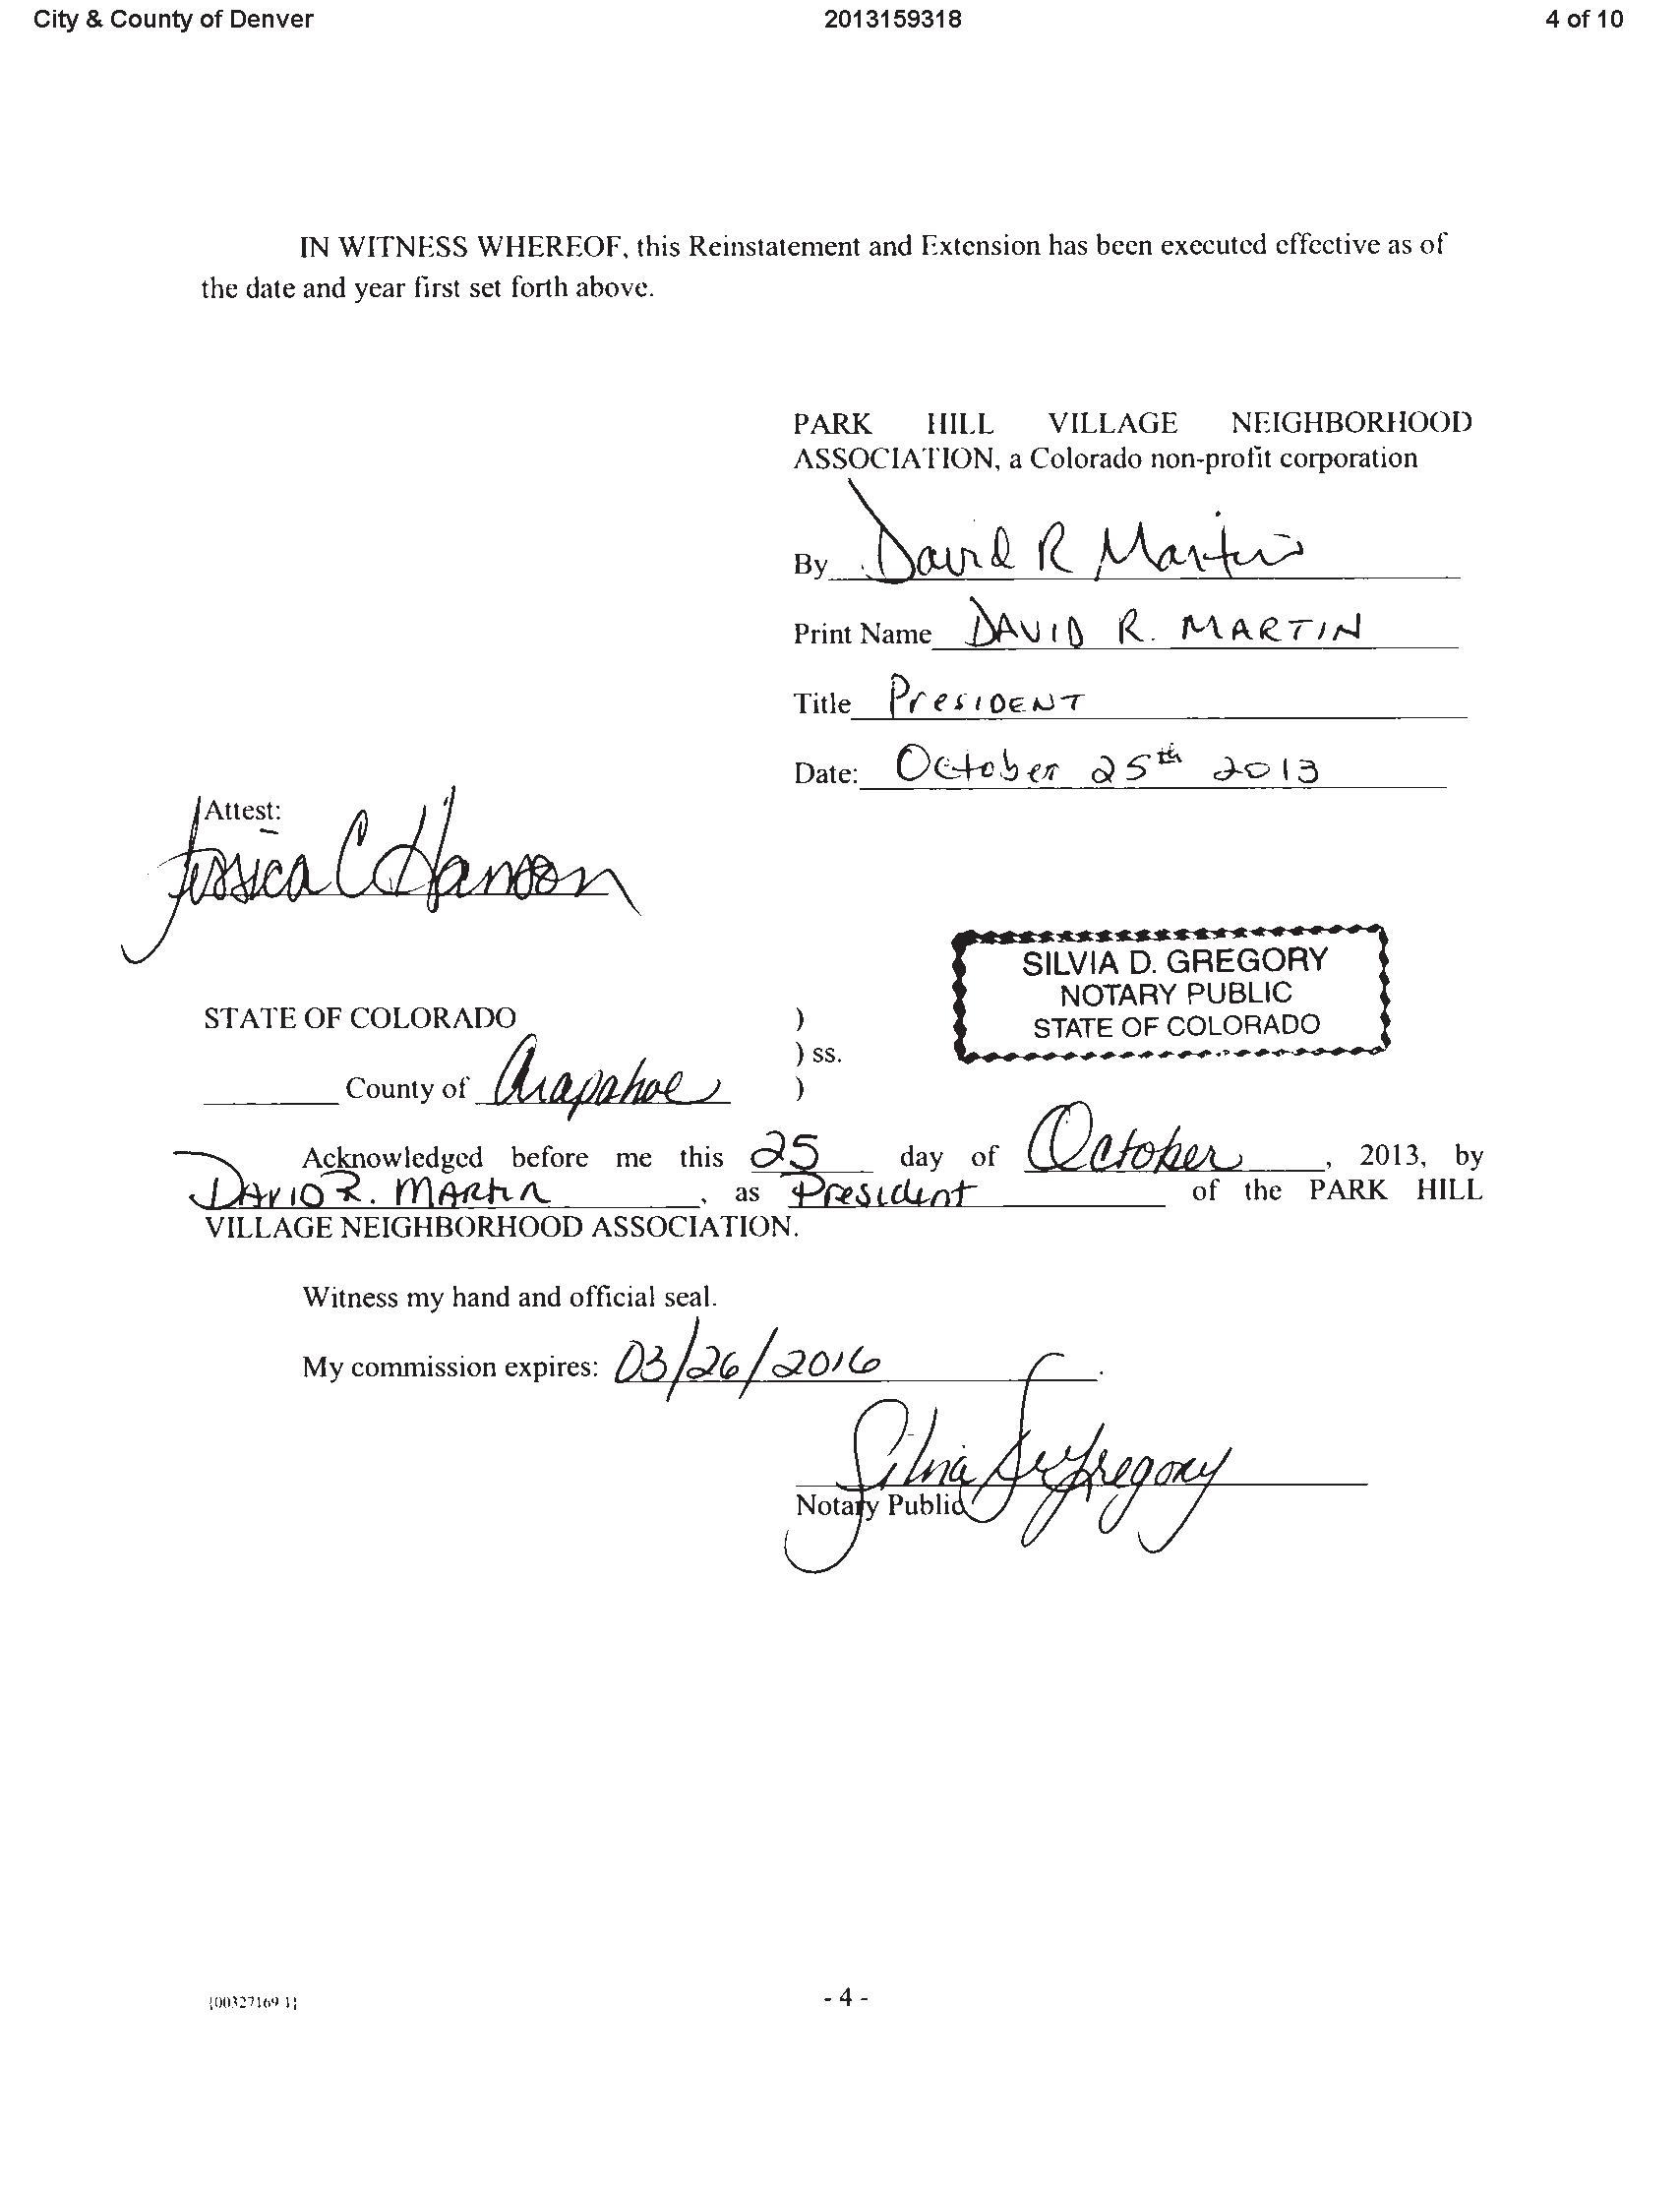 City & County of Denver 2013159318 4 of 10
IN WITNESS WHEREOF, this Reinstatement and Extension has been executed effective as of
the date and year first set forth above.
PARK HILL VILLAGE NEIGHBORHOOD
ASSOCIATION, a Colorado non-profit corporation
By David R Martin
Print Name DAVID R. MARTIN
Title President
Date: October 25th 2013
Attest:
Jessica C Hanson
SILVIA D. GREGORY
NOTARY PUBLIC
STATE OF COLORADO
STATE OF COLORADO )
) ss.
County of Arapahoe )
Acknowledged before me this 25 day of October, 2013, by
DAVID R. MARTIN, as President of the PARK HILL
VILLAGE NEIGHBORHOOD ASSOCIATION.
Witness my hand and official seal.
My commission expires: 03/26/2016.
Silvia Gregory
Notary Public
{00327169 1} - 4 -